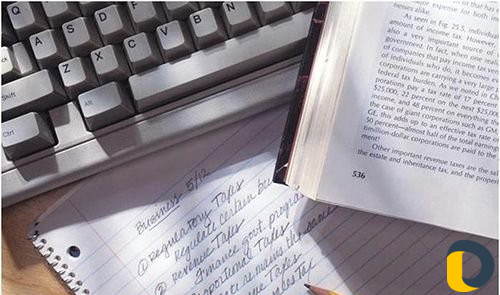 Q
W
A
S
D
F
G
H
Z
X
C
V
B
N
Shift
Alt
Ctrl
major expense for both
nesses alike.
As seen in Fig. 25.5, individua
amount of income tax. However,
also a very important source of
government. In fact, when one
of companies that pay income tax
of individuals who do, it becomes
corporations are carrying a very large
federal tax burden. As we noted in
porations pay a tax rate of 17 percent
$25,000, 22 percent on the next $25,00
income, and 48 percent on everything
the case of giant corporations such as G
GE, this adds up to an effective tax rate
50 percent—almost half of the total earnings
million-dollar corporations are paid to the
ment!
Other important revenue taxes are the sal
the estate and inheritance tax, and the proper
536
Business 5/12
① Regulatory Taxes
Regulate certain bus
② Revenue Taxes
Finance govt. progra
Proportional Taxes
Taxes
Tax